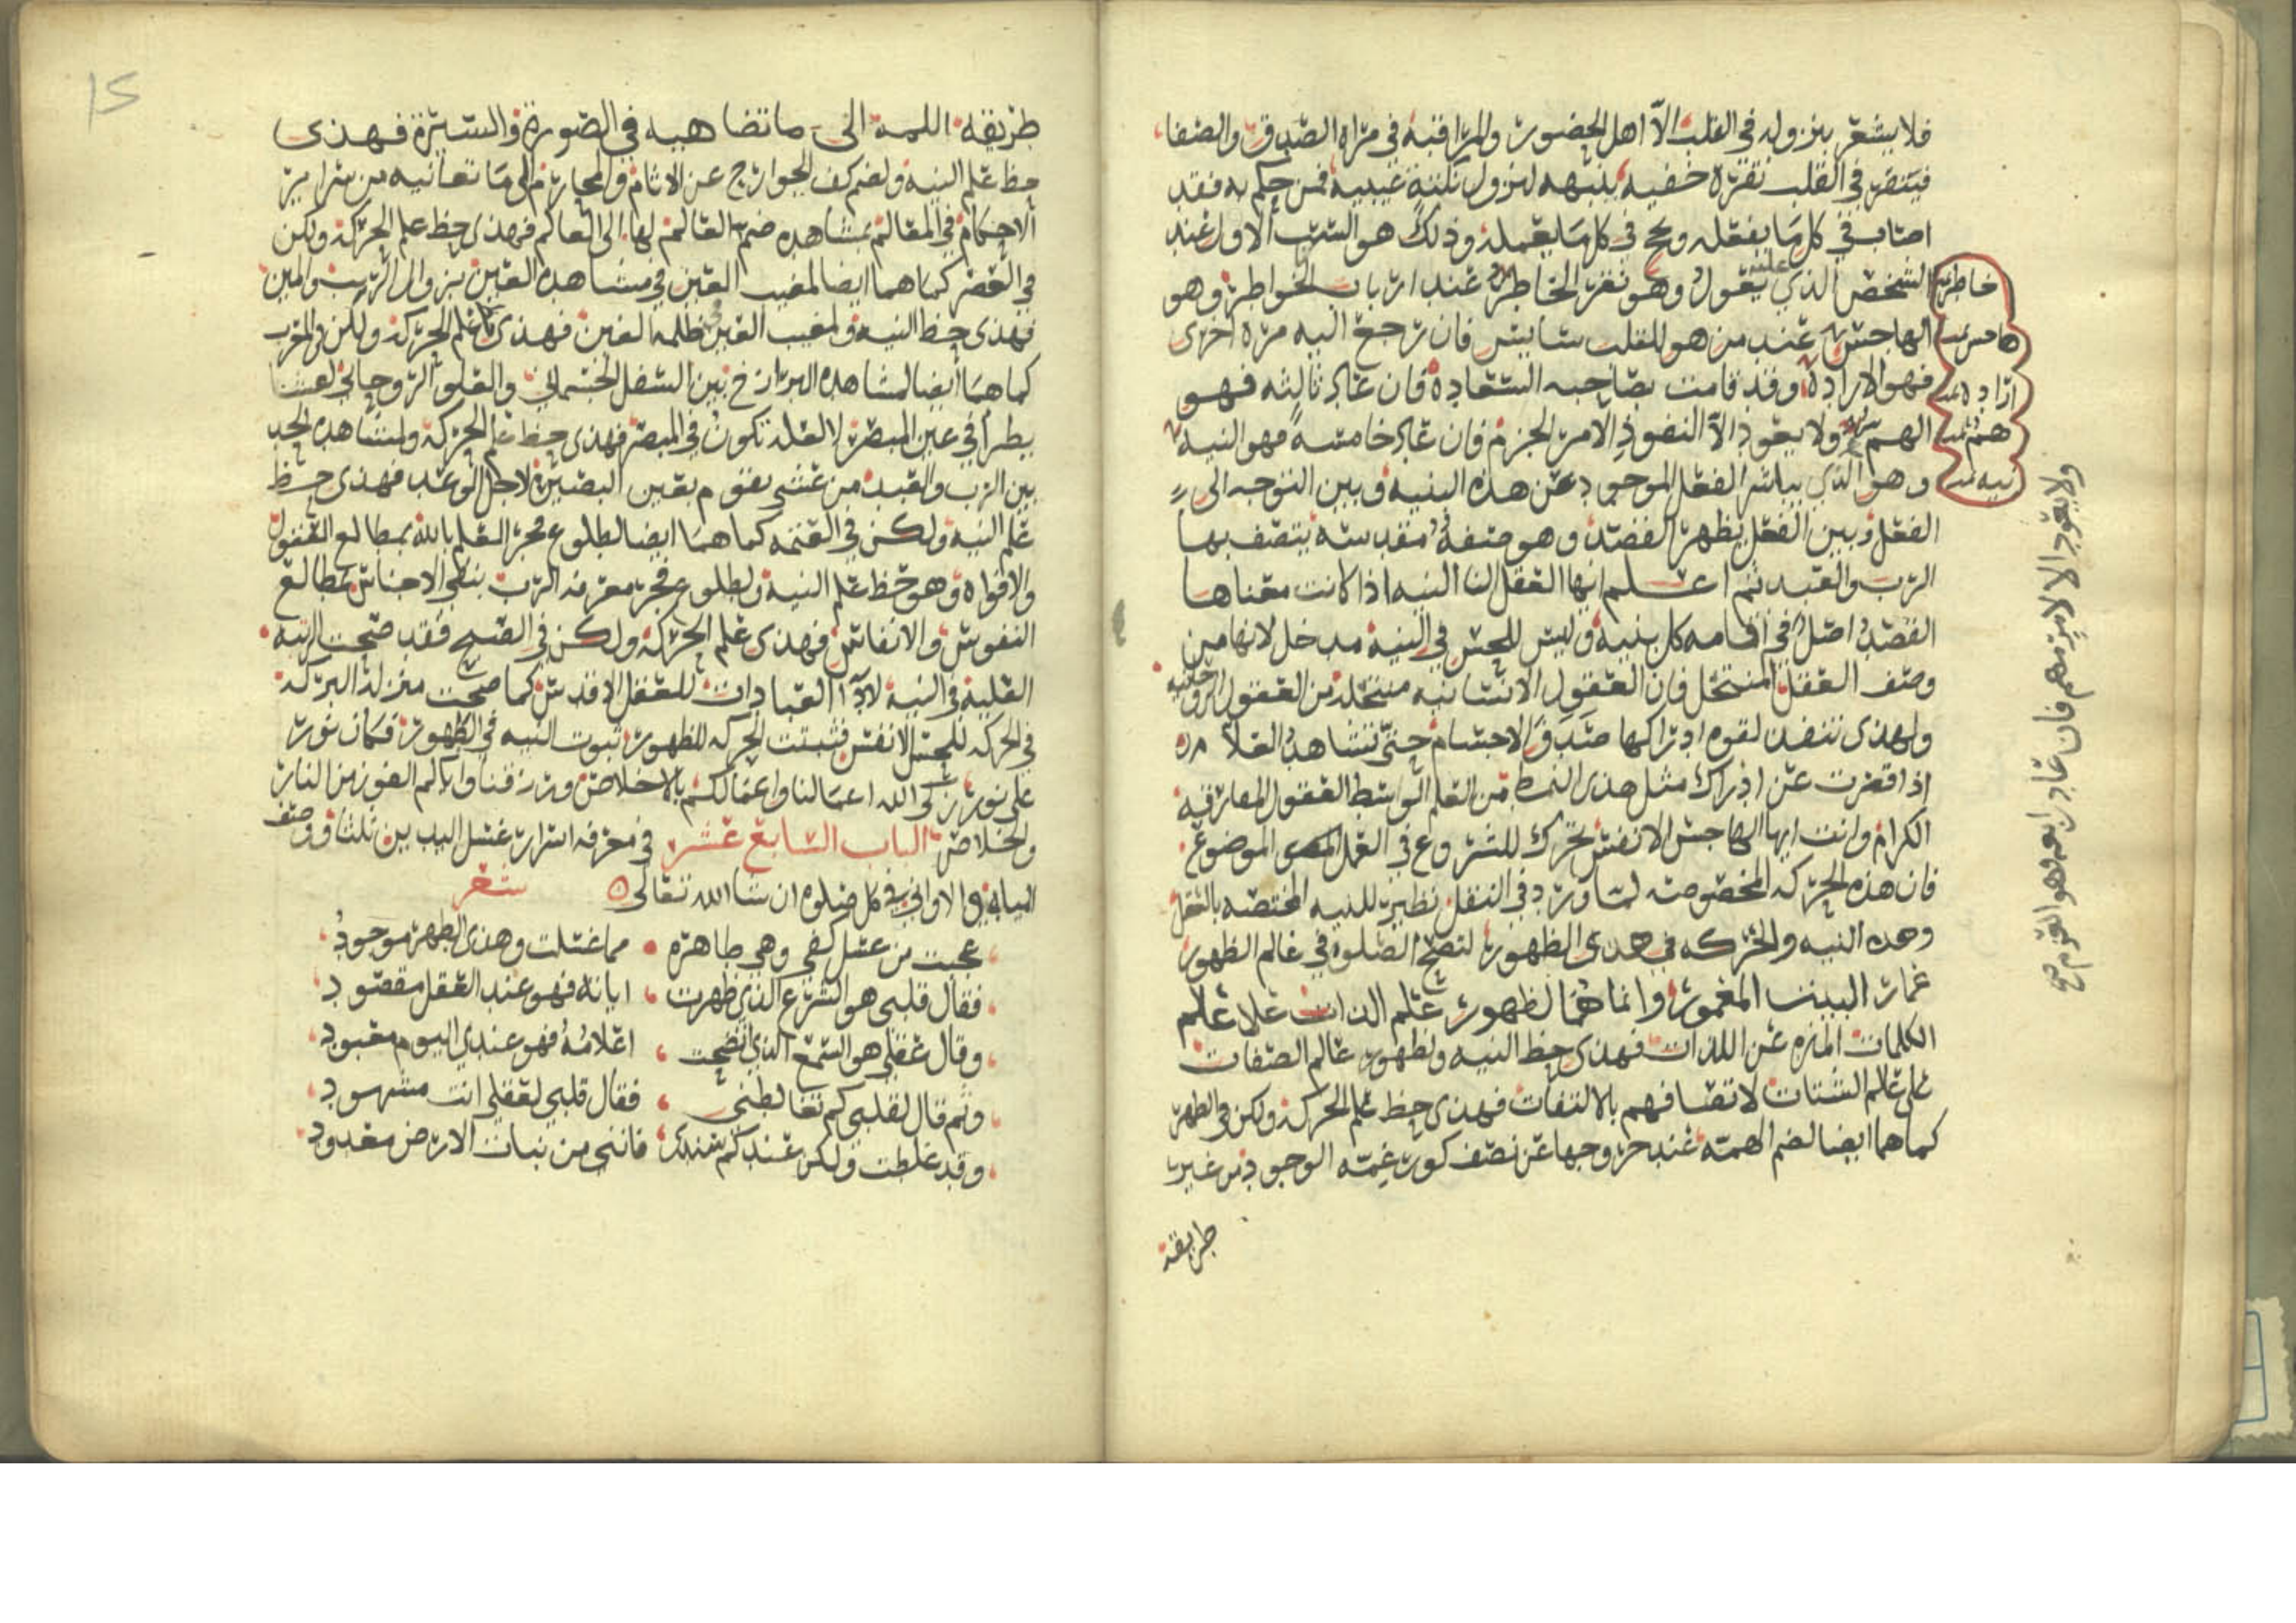 فلا يشعر بنزوله في القلب الا اهل الحضور والمراقبة في مراة الصدق والصفا
فينقر في القلب نقرة خفيه ينبهه لنزول نكتة غيبية فمن حكم به فقد
اصاب في كل ما يفعله ونجح في كل ما يعمله وذلك هو السبب الاول عند
الشخص الذي يعول عليه وهو نقر الخاطر عند ارباب الخواطر وهو
الهاجس عند من هو للقلب سايس فان رجع اليه مرة اخرى
فهو الارادة وقد قامت بصاحبه السعادة فان عاد ثالثه فهو
الهم ولا يعود الا لنفوذ الامر الجزم فان عاد خامسة فهو النية
وهو الذي يباشر الفعل الموجود عن هذه البنيه وبين التوجه الى
الفعل وبين الفعل يظهر القصد وهو صفة مقدسة يتصف بها
الرب والعبد ثم اعلم ايها العقل ان النيه اذا كانت معناها
القصد اصل في اقامه كل بنية وليس للحس في النية مدخل لانها من
وصف العقل المنتحل فان العقول الانسانيه منتحلة من العقول الروحانيه
ولهذى تنفد لقوه ادراكها صدق الاجسام حتى تشاهد العلام
اذا قصرت عن ادراك مثل هذى النمط من العلم الواسط العقول المعارفية
الكرام وانت ايها الهاجس الانفس تحرك للشروع في العمل الموضوع
فان هذه الحركه المخصوصه لما ورد في النفل نظير للنيه المختصه بالعقل
وهذه النيه والحركه في هدى الظهور لتصح الصلوة في عالم الظهور
عمار البيت المعمور وانما هما لظهور علم الذات على علم
الكلمات المنزه عن اللذات فهذى حظ النيه ولظهور عالم الصفات
على عالم الشتات لاتصافهم بالالتفات فهذى حظ علم الحركة ولكن في الظهر
كما هما ايضا لضم الهمة عند خروجها عن نصف كور عمة الوجود من غير
طريقة
خاطر
هاجس
ارادة
هم
نيه
ولا يعود الا لامر مهم فان عاد رابعه فهو العزم صح
15
طريقه اللمة الى ما تضاهيه في الصورة والسيرة فهذى
حظ علم النيه ولضم كف الجوارح عن الاثام والمحارم الى ما تعانيه من سراير
الاحكام في المقالم بمشاهده ضم العالم لها الى العالم فهذى حظ علم الحركة ولكن
في العصر كما هما ايضا لمغيب العين في مشاهده العين بزوال الريب والمين
فهذى حظ النيه ولمغيب العين في ظلمه الغين فهذى حظ علم الحركة ولكن في المغرب
كما هما ايضا لمشاهده البرازخ بين السفل الجسماني والعلو الروحاني لعشا
يطرأ في عين المبصر لا لعلة تكون في المبصر فهذى حظ علم الحركة ولمشاهده الحد
بين الرب والعبد من عشى يقوم بعين البصيرة لاجل الوعد فهذى حظ
علم النيه ولكن في العتمه كما هما ايضا لطلوع فجر العلم بالله بمطالع العقول
والافواه وهو حظ علم النية ولطلوع فجر معرفه الرب بنفي الاجناس بمطالع
النفوس والانفاس فهذى علم الحركه ولكن في الصبح فقد صحت الرتبه
العلية في النية لاداا العبادات للعقل الاقدس كما صحت منزلة البركه
في الحركه للحس الانفس فثبتت الحركه للظهور ثبوت النيه في الظهور فكان نور
على نور زكى الله اعمالنا واعمالكم بالاخلاص ورزقنا واياكم الفوز من النار
والخلاص الباب السابع عشر في معرفه اسرار غسل اليدين ثلثا ووصف
المياه في الاواني في كل صلوه ان شا الله تعالى ه
شعر
عجبت من غسل كفي وهي طاهره • مما غسلت وهذى الطهر موجود
فقال قلبي هو الشرع الذي ظهرت • اياته فهو عند العقل مقصود
وقال عقلي هو السمع الذي اتضحت • اعلامه فهو عندي اليوم معبود
وثم قال لقلبي كم تغالطني • فقال قلبي لعقلي انت مشهود
وقد غلطت ولكن عندكم سندكر • فانني من نبات الارض معدود